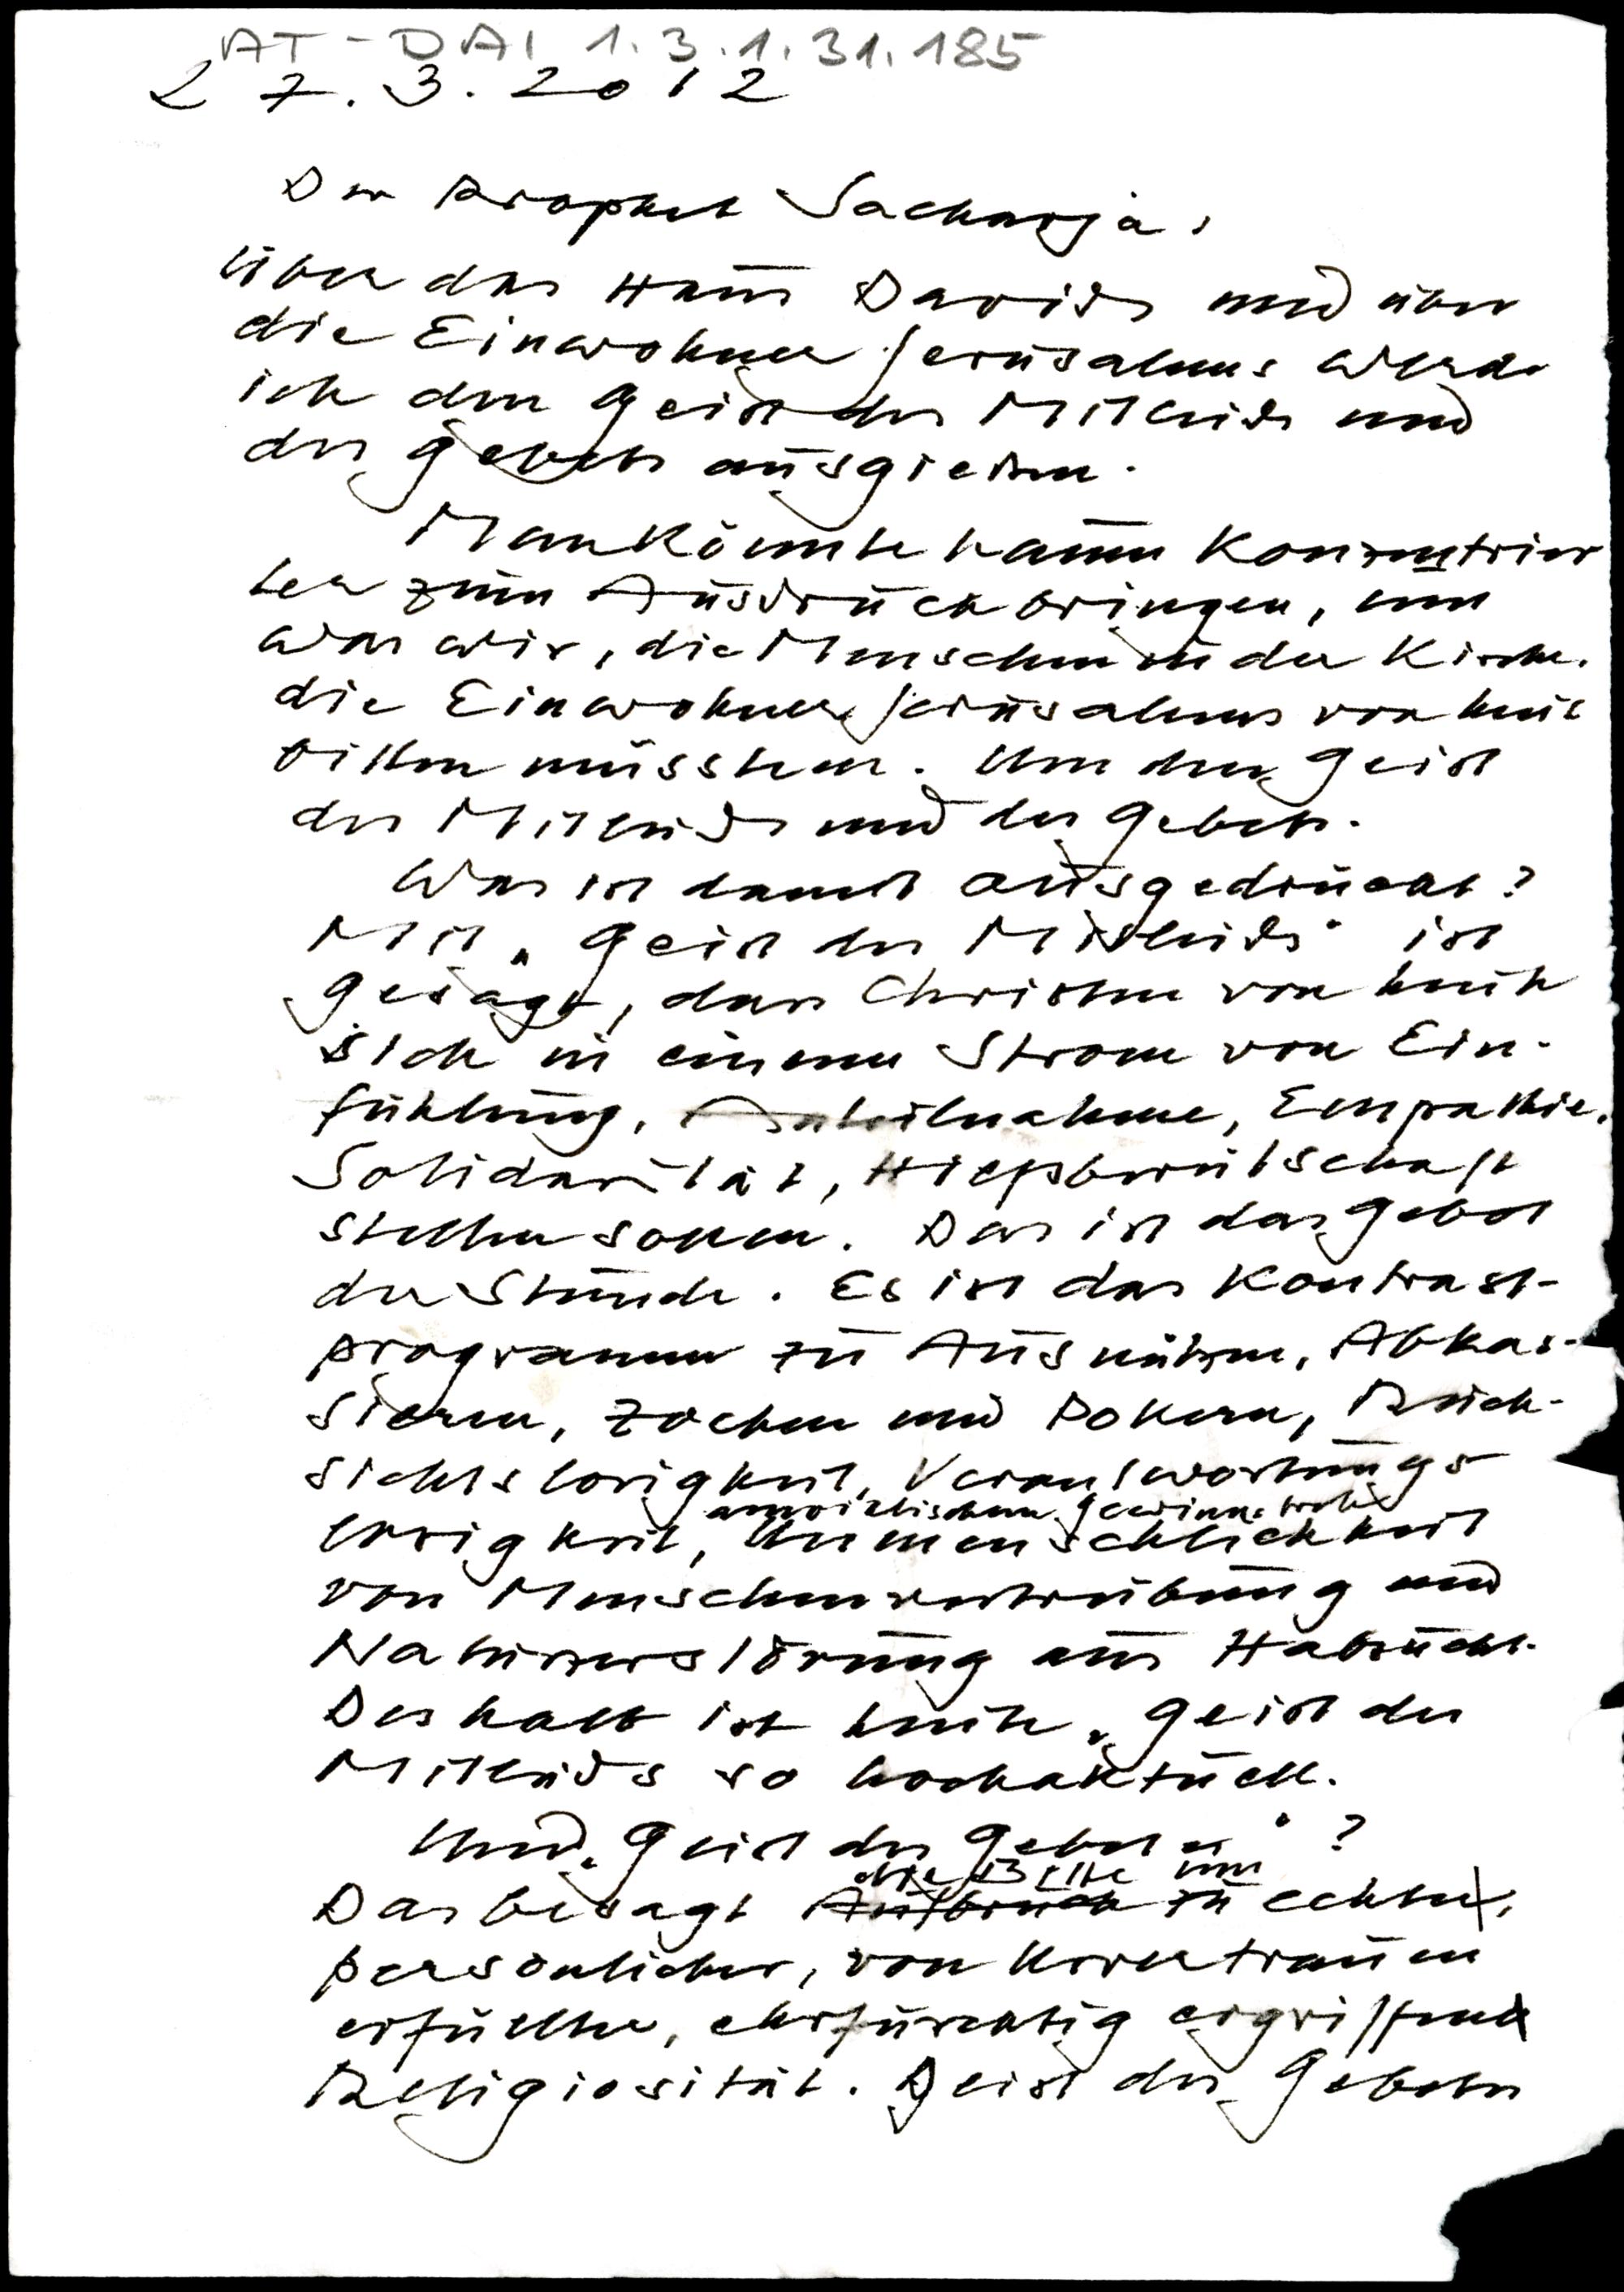 AT-DAI 1.3.1.31.185
27.3.2012
Der Prophet Sacharja:
Über das Haus Davids und über
die Einwohner Jerusalems werde
ich den Geist des Mitleids und
des Gebets ausgießen.
Man könnte kaum konzentrier
ter zum Ausdruck bringen, um
was wir, die Menschen in der Kirche,
die Einwohner Jerusalems von heute
bitten müssten. Um den Geist
des Mitleids und des Gebets.
Was ist damit ausgedrückt?
Mit „Geist des Mitleids" ist
gesagt, dass Christen von heute
sich in einem Strom von Ein-
fühlung, Anteilnahme, Empathie,
Solidarität, Hilfsbereitschaft
stellen sollen. Das ist das Gebot
der Stunde. Es ist das Kontrast-
programm zu Ausnützen, Abkas-
sieren, Zocken und Pokern, Rück-
sichtslosigkeit, Verantwortungs
losigkeit, Unmenschlichkeit
von Menschenvertreibung und
Naturzerstörung aus Habsucht.
Deshalb ist heute „Geist des
Mitleids so hochaktuell.
Und „Geist des Gebetes"?
die Bitte um
Das besagt Aufbruch zu echter,
persönlicher, von Urvertrauen
erfüllter, ehrfürchtig ergriffener
Religiosität. Geist des Gebetes